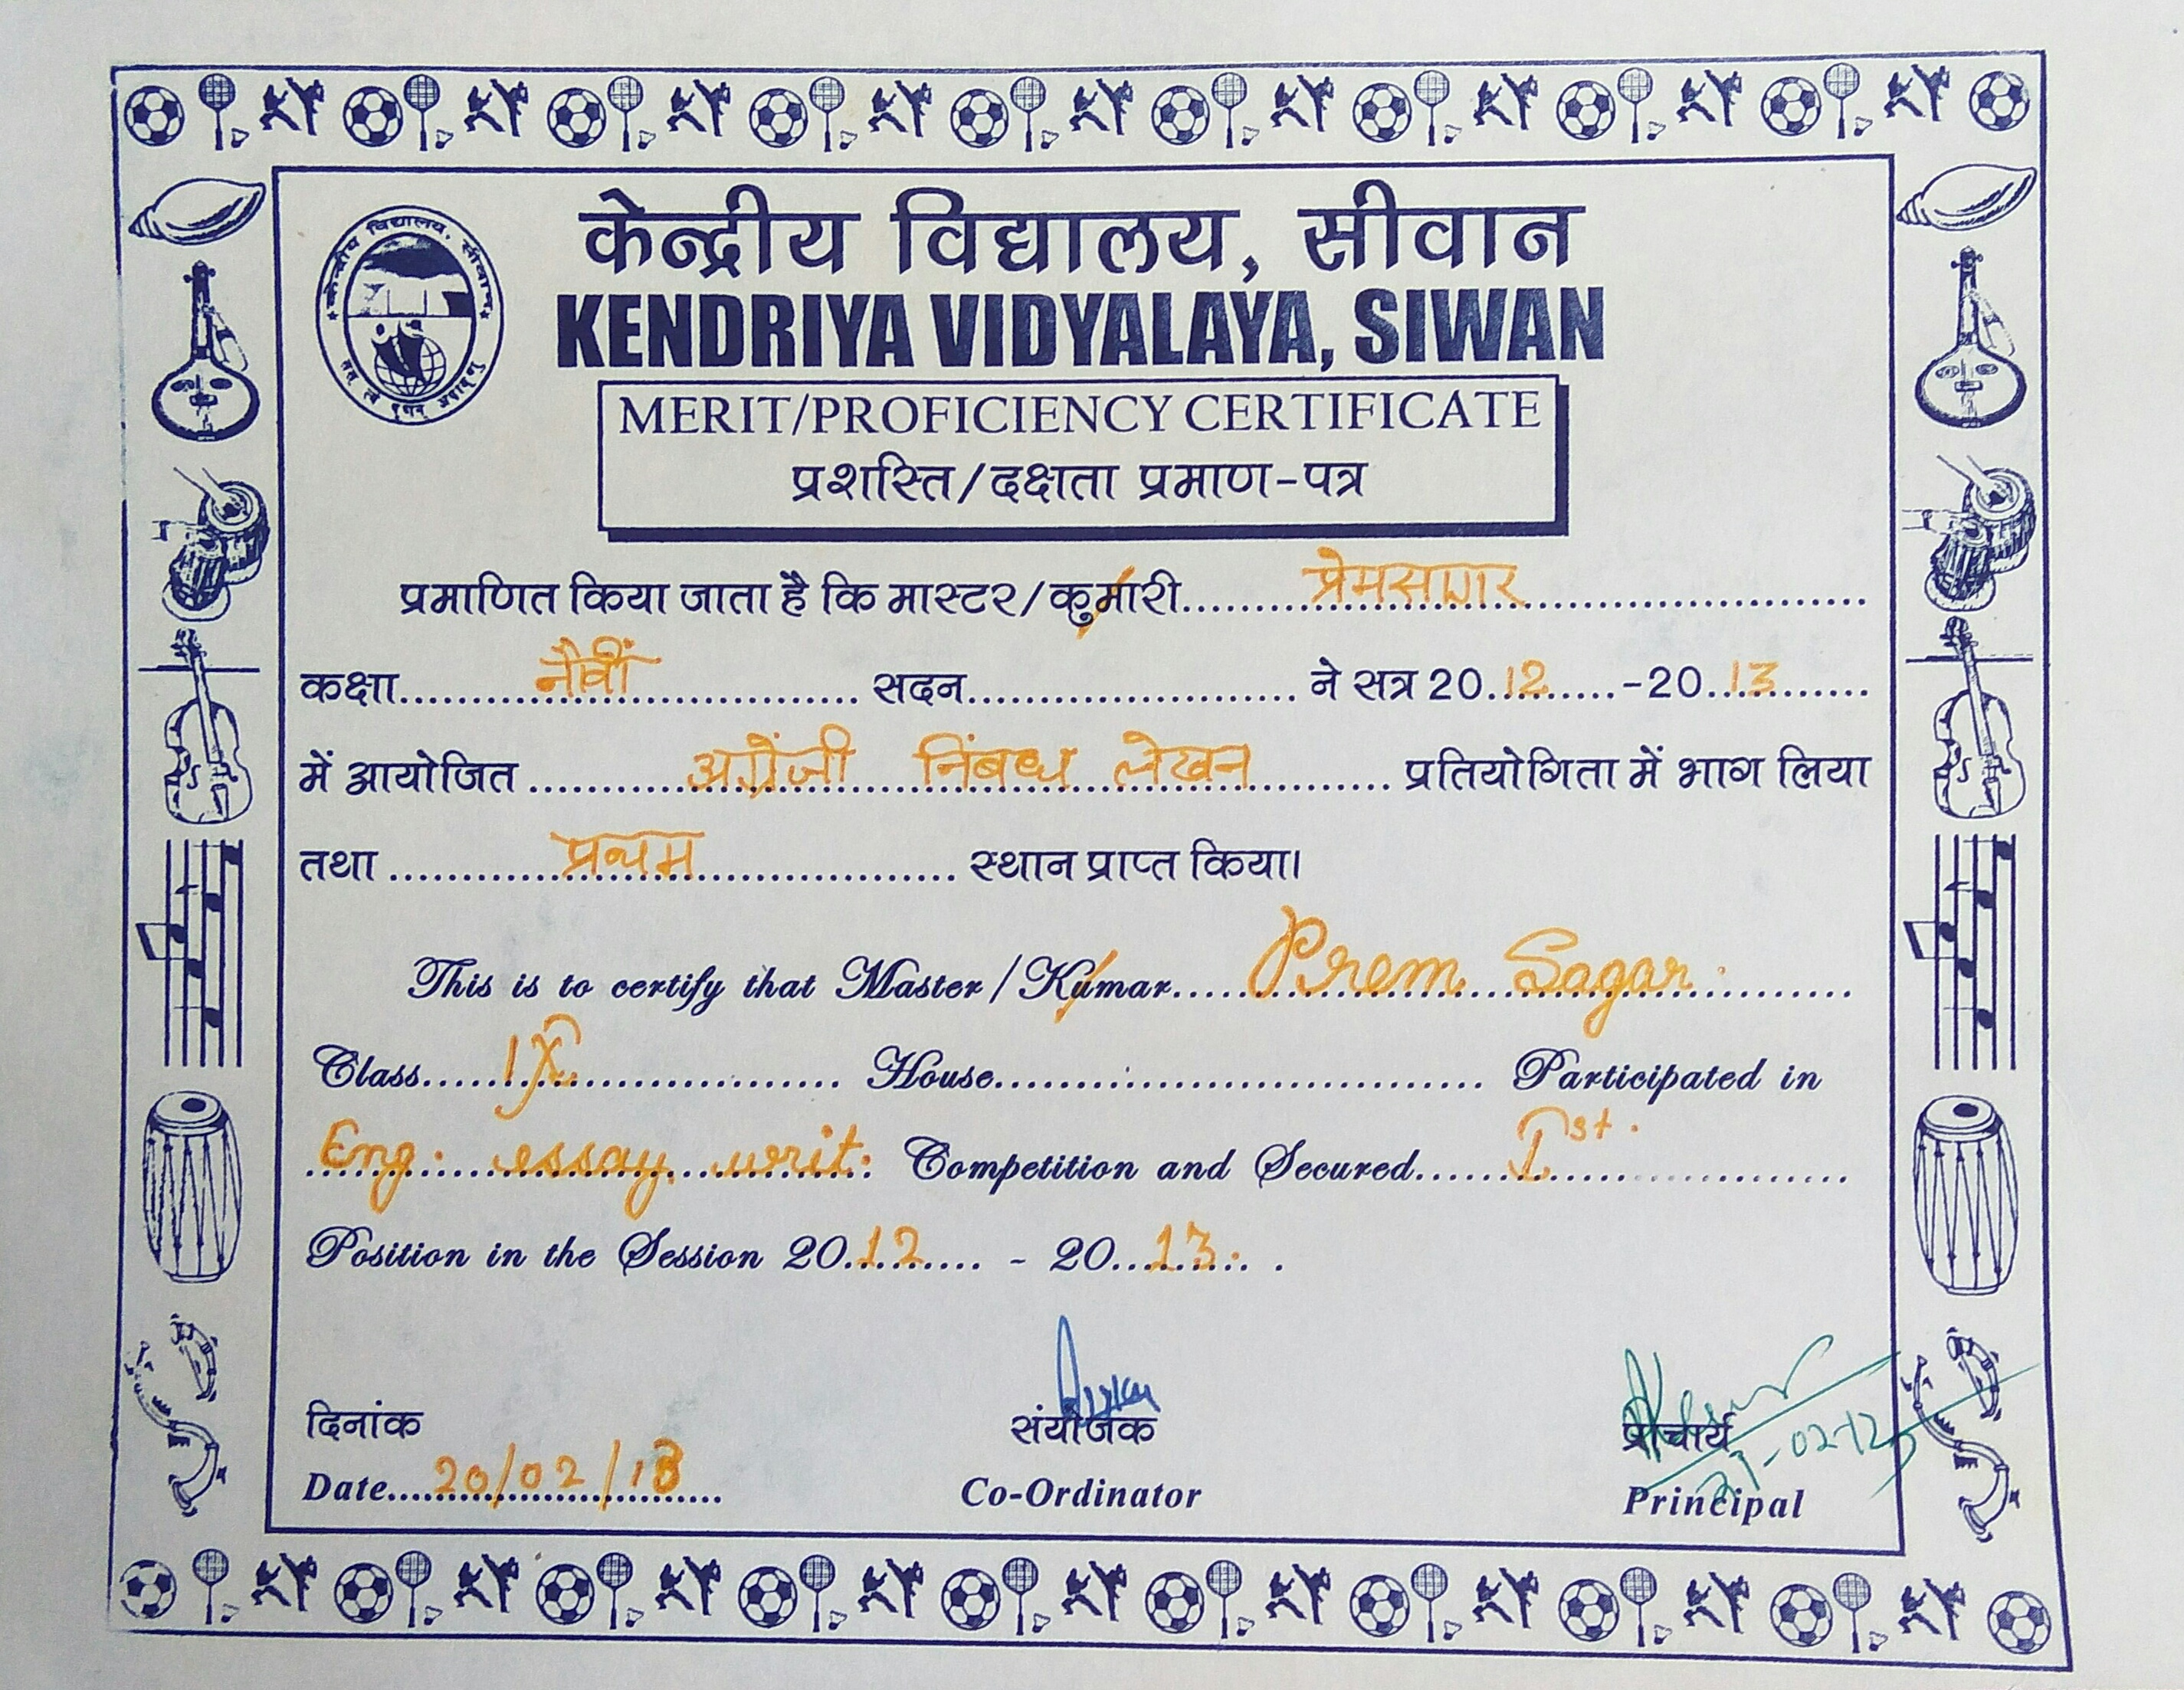 केन्द्रीय विद्यालय, सीवान
तत् त्वं पूषन् अपावृणु
केन्द्रीय विद्यालय, सीवान
KENDRIYA VIDYALAYA, SIWAN
MERIT/PROFICIENCY CERTIFICATE
प्रशस्ति/दक्षता प्रमाण-पत्र
प्रमाणित किया जाता है कि मास्टर/कुमारी.....प्रेमसागर.....
कक्षा.....नौवीं..... सदन..... ने सत्र 20.12.....-20.13.....
में आयोजित .....अग्रेंजी निंबध लेखन..... प्रतियोगिता में भाग लिया
तथा .....प्रथम..... स्थान प्राप्त किया।
This is to certify that Master/Kumar.....Prem Sagar.....
Class.....IX..... House..... Participated in
Eng. essay writ: Competition and Secured.....Ist.....
Position in the Session 20.12..... - 20.13..... .
दिनांक संयोजक प्राचार्य
Date.....20/02/13..... Co-Ordinator Principal